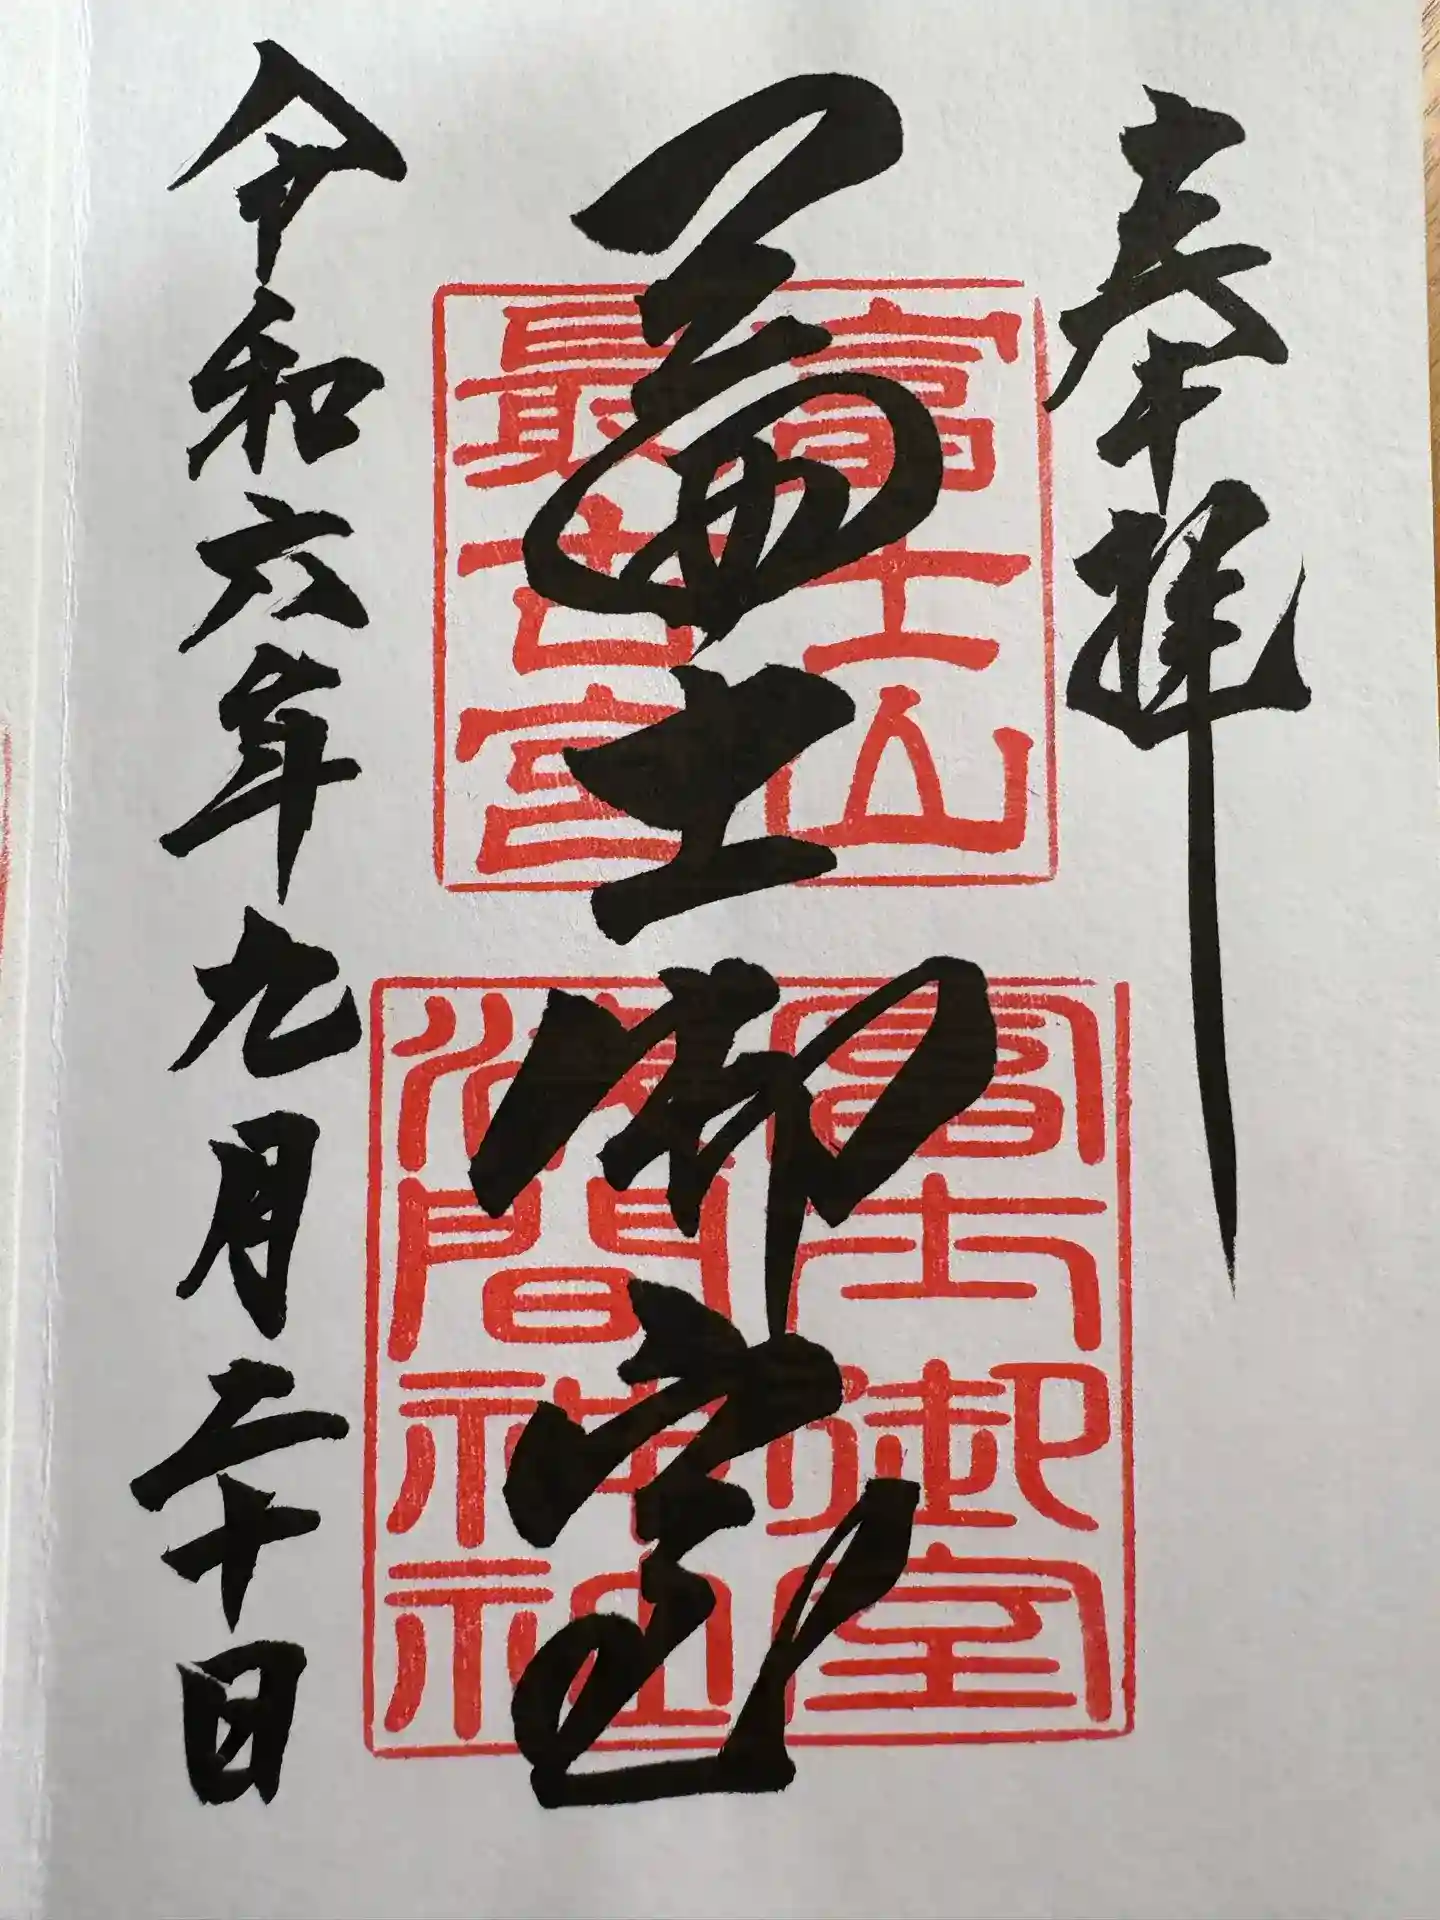 奉拝
富士山
最古宮
富士御室
浅間神社
富士御室
令和六年九月二十日